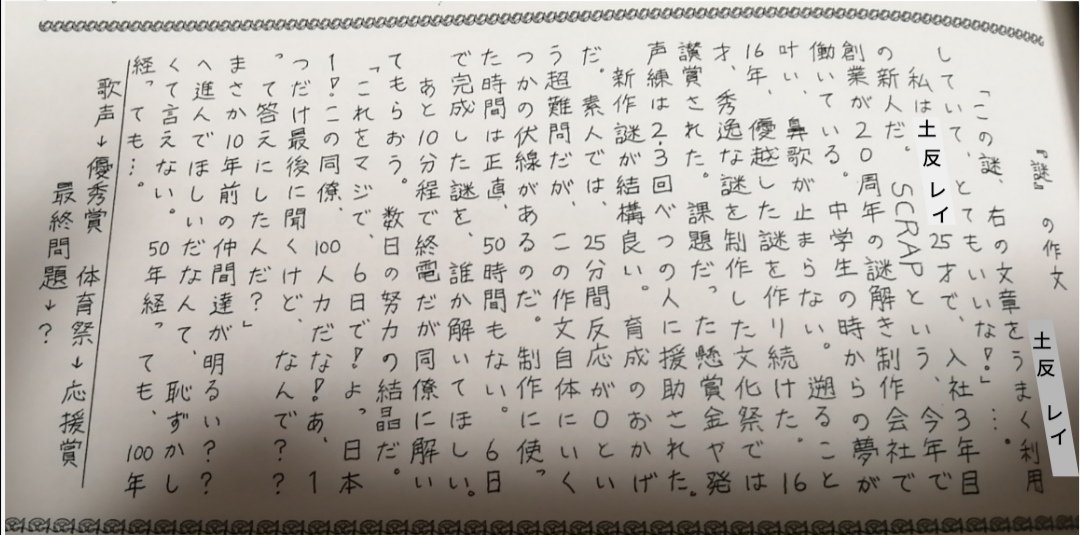 『謎』の作文
土反 レイ
「この謎、右の文章をうまく利用
していて、とてもいいな!」…。
私は土反レイ25才で、入社3年目
の新人だ。SCRAPという、今年で
創業が20周年の謎解き制作会社で
働いている。中学生の時からの夢が
叶い、鼻歌が止まらない。遡ること
16年、優越した謎を作り続けた。16
才、秀逸な謎を制作した文化祭では
讃賞された。課題だった懸賞金や発
声練は2,3回べつの人に援助された。
新作謎が結構良い。育成のおかげ
だ。素人では、25分間反応が0とい
う超難問だが、この作文自体にいく
つかの伏線があるのだ。制作に使っ
た時間は正直、50時間もない。6日
で完成した謎を、誰か解いてほしい。
あと10分程で終電だが同僚に解い
てもらおう。数日の努力の結晶だ。
「これをマジで、6日で!よっ日本
1!この同僚、100人力だな!あ、1
つだけ最後に聞くけど、なんで??
って答えにしたんだ?」
まさか10年前の仲間達が明るい??
へ進んでほしいだなんて、恥ずかし
くて言えない。50年経っても、100年
経っても…。
歌声↓優秀賞 体育祭↓応援賞
最終問題↓?